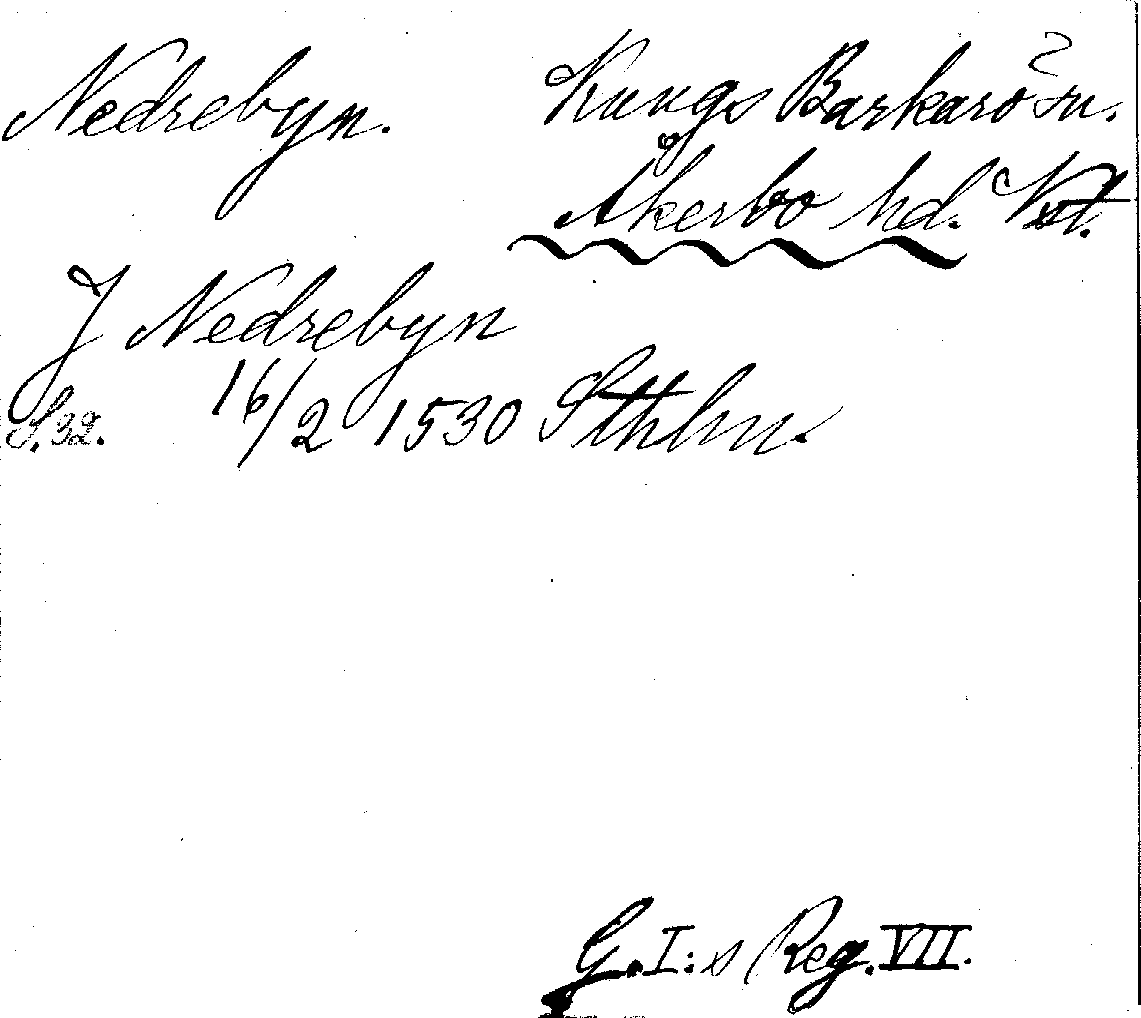 Nedrebyn. Kungs Barkarö sn.
Åkerbo hd. Vstm.
J Nedrebyn
S. 32. 16/2 1530 Sthlm.
G. I:s Reg. VII.